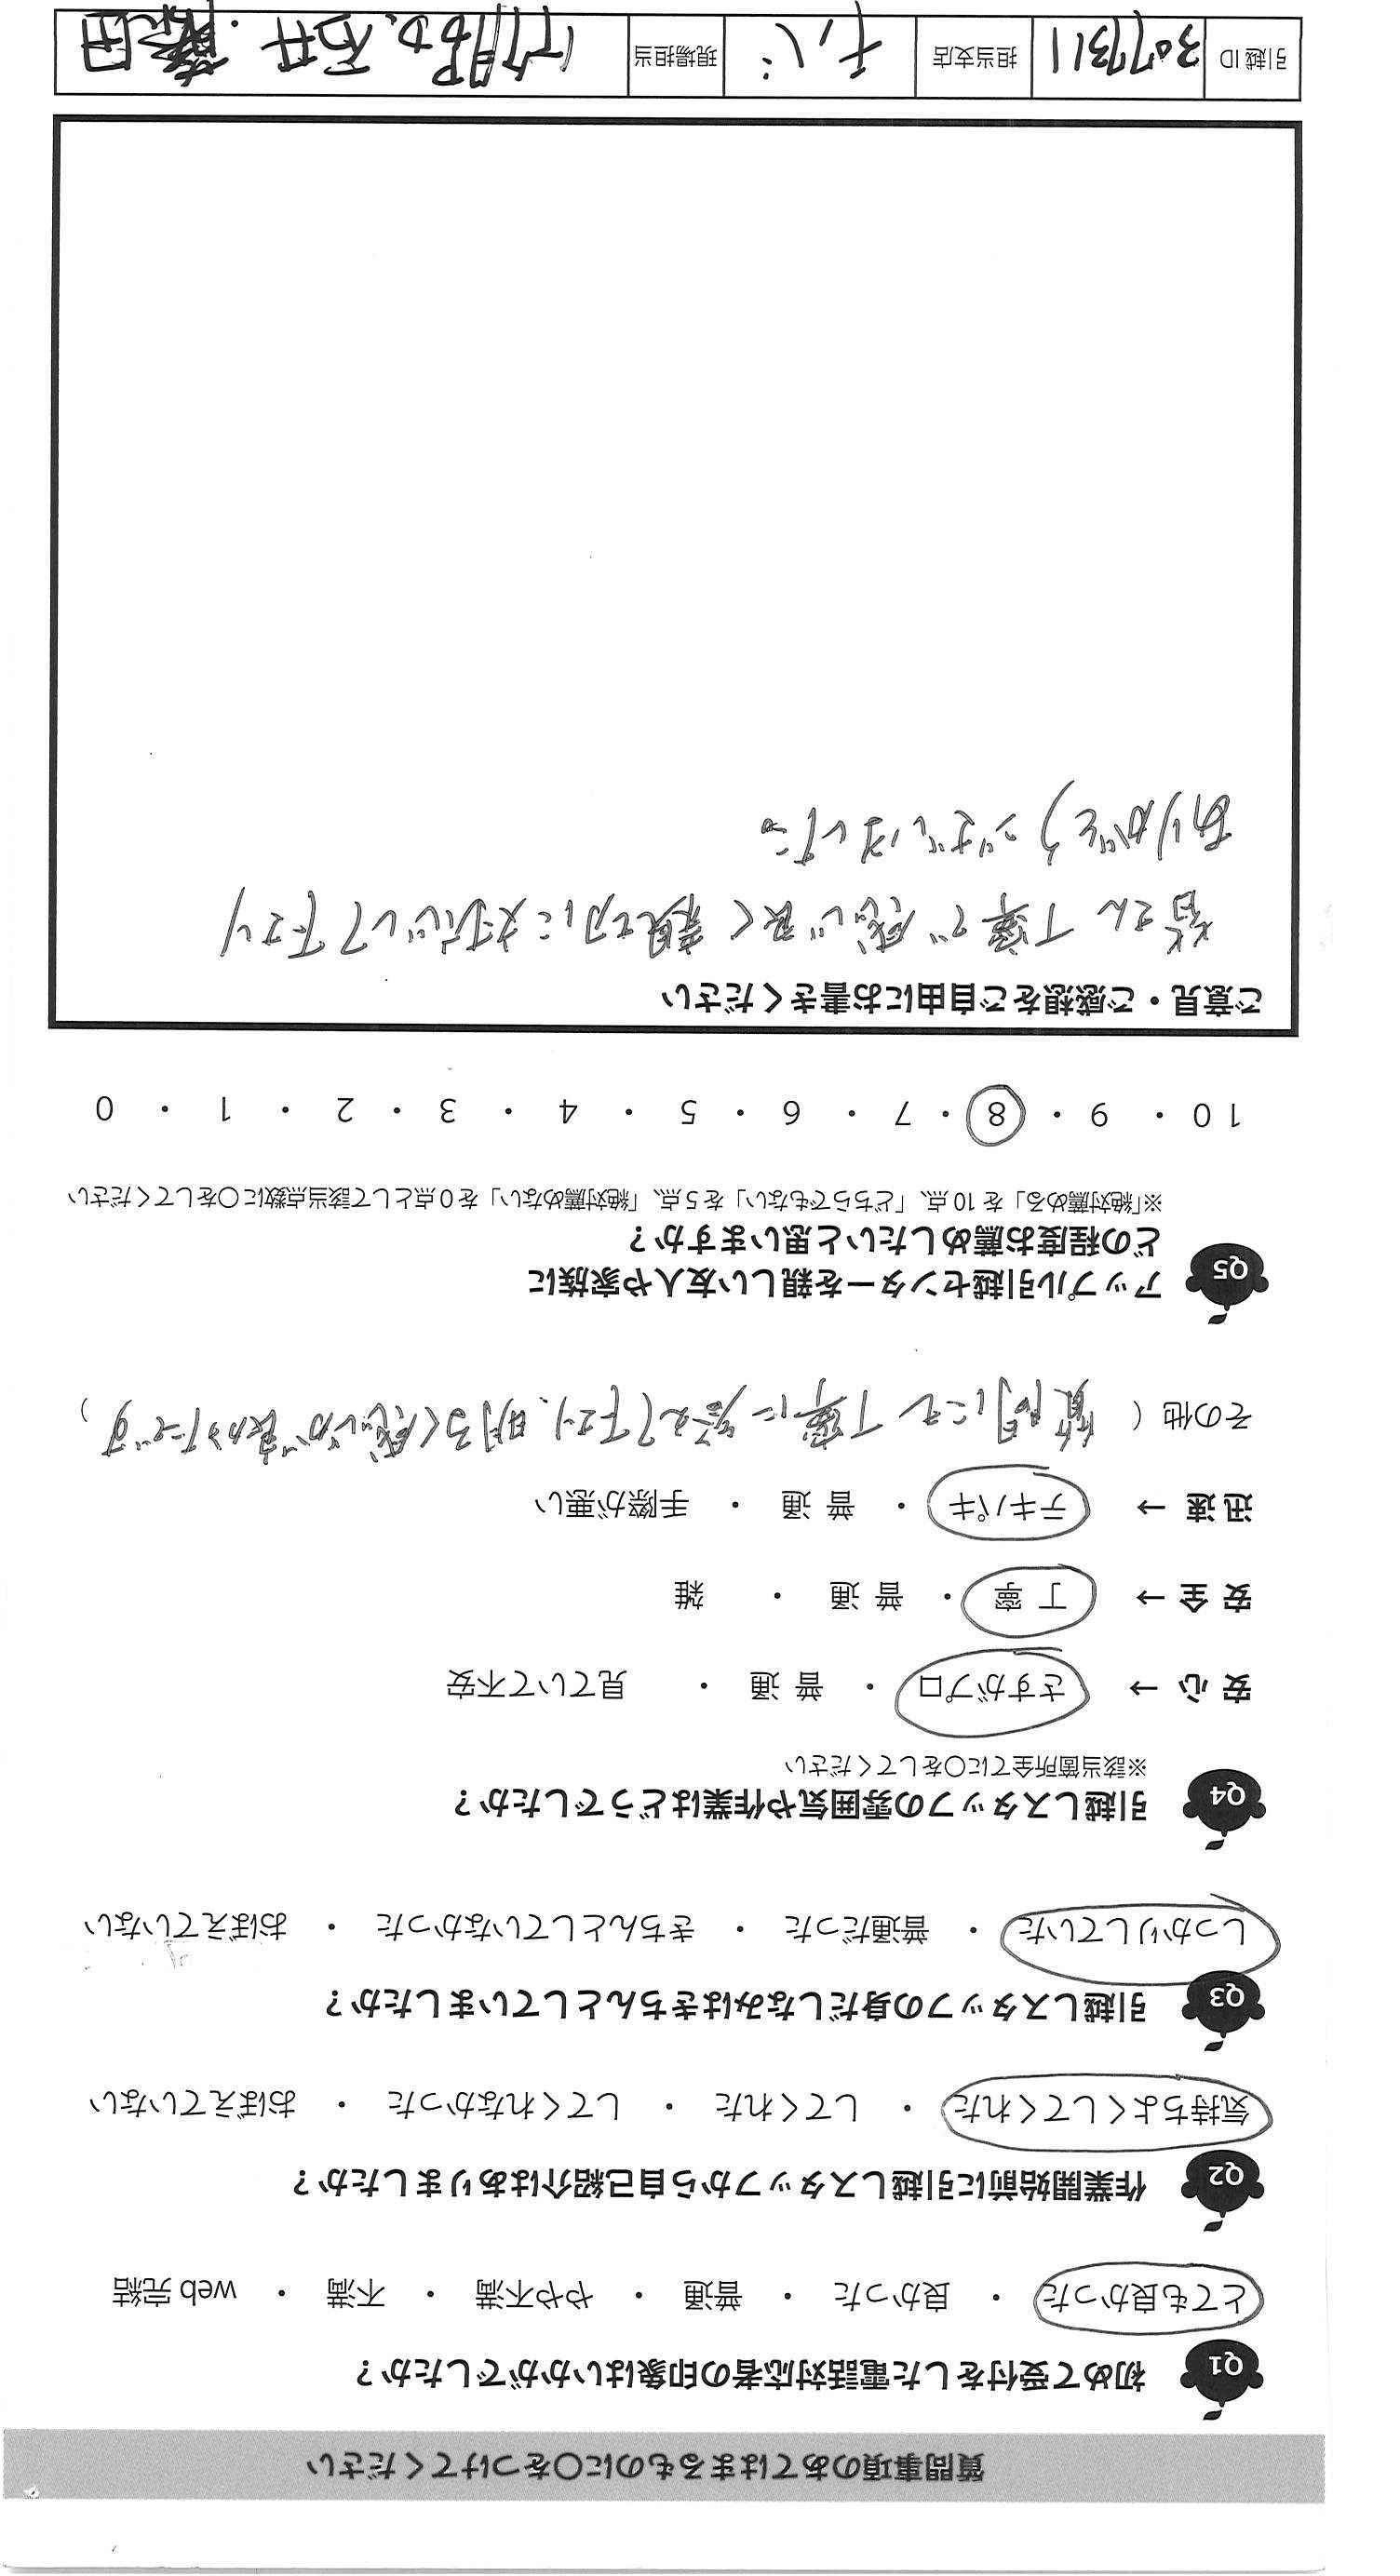 質問事項のあてはまるものに〇をつけてください
Q1 初めて受付をした電話対応者の印象はいかがでしたか？
とても良かった ・ 良かった ・ 普通 ・ やや不満 ・ 不満 ・ web 完結
Q2 作業開始前に引越しスタッフから自己紹介はありましたか？
気持ちよくしてくれた ・ してくれた ・ してくれなかった ・ おぼえていない
Q3 引越しスタッフの身だしなみはきちんとしていましたか？
しっかりしていた ・ 普通だった ・ きちんとしていなかった ・ おぼえていない
Q4 引越しスタッフの雰囲気や作業はどうでしたか？
※該当箇所全てに〇をしてください
安 心 → さすがプロ ・ 普 通 ・ 見ていて不安
安 全 → 丁 寧 ・ 普 通 ・ 雑
迅 速 → テキパキ ・ 普 通 ・ 手際が悪い
その他 ( 質問にも丁寧に答えて下さり、明るく感じが良かったです )
Q5 アップル引越センターを親しい友人や家族に
どの程度お薦めしたいと思いますか？
※「絶対薦める」を 10 点、「どちらでもない」を 5 点、「絶対薦めない」を 0 点として該当点数に〇をしてください
10 ・ 9 ・ 8 ・ 7 ・ 6 ・ 5 ・ 4 ・ 3 ・ 2 ・ 1 ・ 0
ご意見・ご感想をご自由にお書きください
皆さん丁寧で感じ良く親切に対応して下さり
ありがとうございました。
引越 ID 3097311 担当支店 千バ 現場担当 石井・藤田